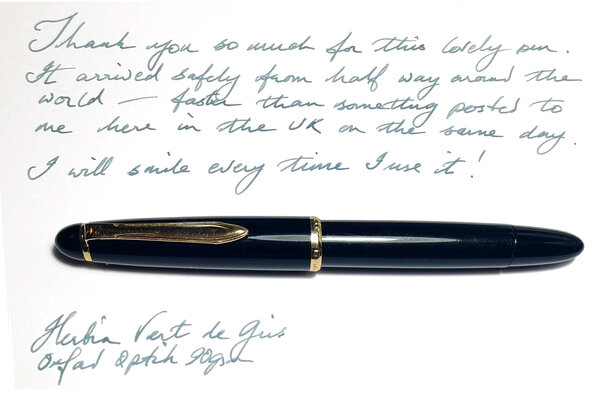 Thank you so much for this lovely pen.
It arrived safely from half way around the
world — faster than something posted to
me here in the UK on the same day.
I will smile every time I use it!
Herbin Vert de Gris
Oxford Optik 90gsm